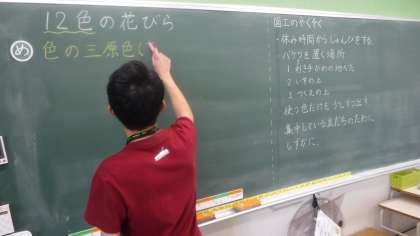 12色の花びら
め 色の三原色(
図工のやくそく
・休み時間からじゅんびをする
・バケツを置く場所
1 利き手がわの地めん
2 いすの上
3 つくえの上
使う色だけを
集中している友だちのために
しずかに。